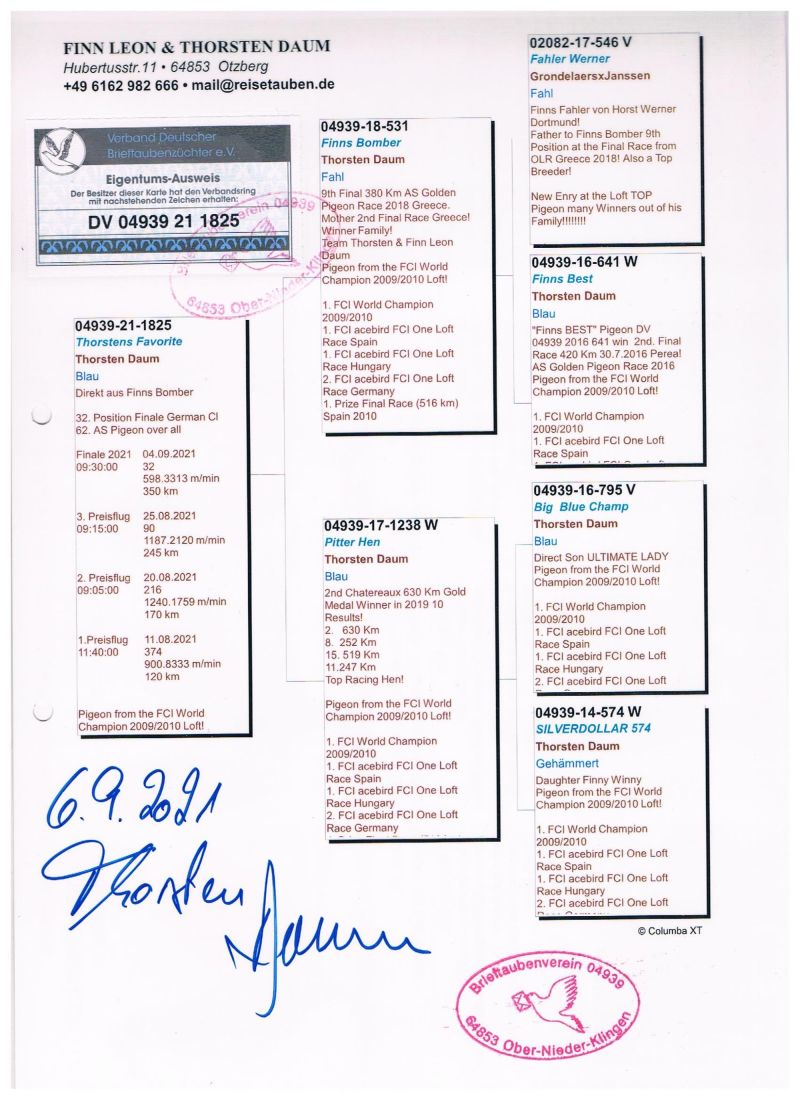 FINN LEON & THORSTEN DAUM
Hubertusstr.11 • 64853 Otzberg
+49 6162 982 666 • mail@reisetauben.de
Verband Deutscher
Brieftaubenzüchter e.V.
Eigentums-Ausweis
Der Besitzer dieser Karte hat den Verbandsring
mit nachstehenden Zeichen erhalten:
DV 04939 21 1825
64853 Ober-Nieder-Klingen
04939-21-1825
Thorstens Favorite
Thorsten Daum
Blau
Direkt aus Finns Bomber
32. Position Finale German Cl
62. AS Pigeon over all
Finale 2021 04.09.2021
09:30:00 32
598.3313 m/min
350 km
3. Preisflug 25.08.2021
09:15:00 90
1187.2120 m/min
245 km
2. Preisflug 20.08.2021
09:05:00 216
1240.1759 m/min
170 km
1.Preisflug 11.08.2021
11:40:00 374
900.8333 m/min
120 km
Pigeon from the FCI World
Champion 2009/2010 Loft!
04939-18-531
Finns Bomber
Thorsten Daum
Fahl
9th Final 380 Km AS Golden
Pigeon Race 2018 Greece.
Mother 2nd Final Race Greece!
Winner Family!
Team Thorsten & Finn Leon
Daum
Pigeon from the FCI World
Champion 2009/2010 Loft!
1. FCI World Champion
2009/2010
1. FCI acebird FCI One Loft
Race Spain
1. FCI acebird FCI One Loft
Race Hungary
2. FCI acebird FCI One Loft
Race Germany
1. Prize Final Race (516 km)
Spain 2010
04939-17-1238 W
Pitter Hen
Thorsten Daum
Blau
2nd Chatereaux 630 Km Gold
Medal Winner in 2019 10
Results!
2. 630 Km
8. 252 Km
15. 519 Km
11.247 Km
Top Racing Hen!
Pigeon from the FCI World
Champion 2009/2010 Loft!
1. FCI World Champion
2009/2010
1. FCI acebird FCI One Loft
Race Spain
1. FCI acebird FCI One Loft
Race Hungary
2. FCI acebird FCI One Loft
Race Germany
02082-17-546 V
Fahler Werner
GrondelaersxJanssen
Fahl
Finns Fahler von Horst Werner
Dortmund!
Father to Finns Bomber 9th
Position at the Final Race from
OLR Greece 2018! Also a Top
Breeder!
New Enry at the Loft TOP
Pigeon many Winners out of his
Family!!!!!!!!
04939-16-641 W
Finns Best
Thorsten Daum
Blau
"Finns BEST" Pigeon DV
04939 2016 641 win 2nd. Final
Race 420 Km 30.7.2016 Perea!
AS Golden Pigeon Race 2016
Pigeon from the FCI World
Champion 2009/2010 Loft!
1. FCI World Champion
2009/2010
1. FCI acebird FCI One Loft
Race Spain
04939-16-795 V
Big Blue Champ
Thorsten Daum
Blau
Direct Son ULTIMATE LADY
Pigeon from the FCI World
Champion 2009/2010 Loft!
1. FCI World Champion
2009/2010
1. FCI acebird FCI One Loft
Race Spain
1. FCI acebird FCI One Loft
Race Hungary
2. FCI acebird FCI One Loft
04939-14-574 W
SILVERDOLLAR 574
Thorsten Daum
Gehämmert
Daughter Finny Winny
Pigeon from the FCI World
Champion 2009/2010 Loft!
1. FCI World Champion
2009/2010
1. FCI acebird FCI One Loft
Race Spain
1. FCI acebird FCI One Loft
Race Hungary
2. FCI acebird FCI One Loft
© Columba XT
6.9.2021
Thorsten
Daum
Brieftaubenverein 04939
64853 Ober-Nieder-Klingen